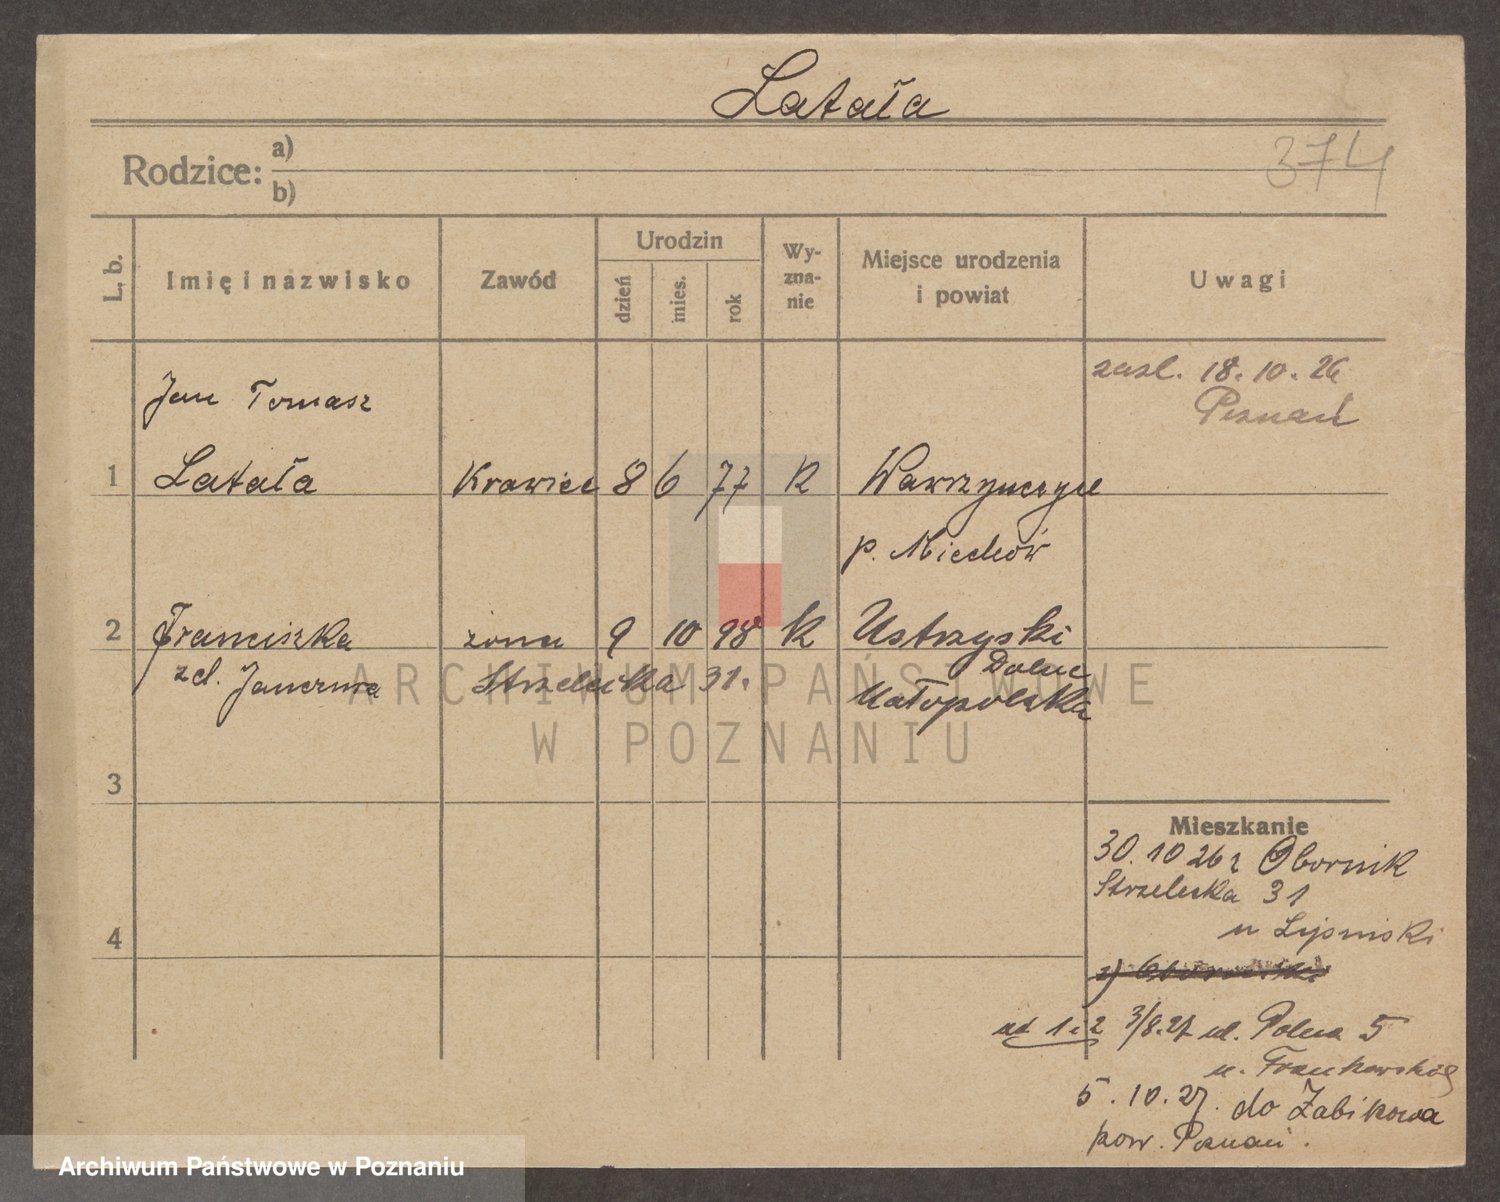 Latała
Rodzice: a)
b)
374
L. b.
Imię i nazwisko
Zawód
Urodzin
dzień
mies.
rok
Wy-
zna-
nie
Miejsce urodzenia
i powiat
Uwagi
zasl. 18.10.26
Poznań
Jan Tomasz
1 Latała Krawiec 8 6 77 K
p. Miechów
2 Franciszka żona 9 10 98 K Ustrzyski
Dolne
Strzelecka 31. Małopolska
ARCHIWUM PAŃSTWOWE
W POZNANIU
3
4
Mieszkanie
30.10 26 r Obornik
Strzelecka 31
u
ad 1 i 2 3/8.27 ul. Polna 5
u.
5.10.27. do Żabikowa
pow. Poznań.
Archiwum Państwowe w Poznaniu